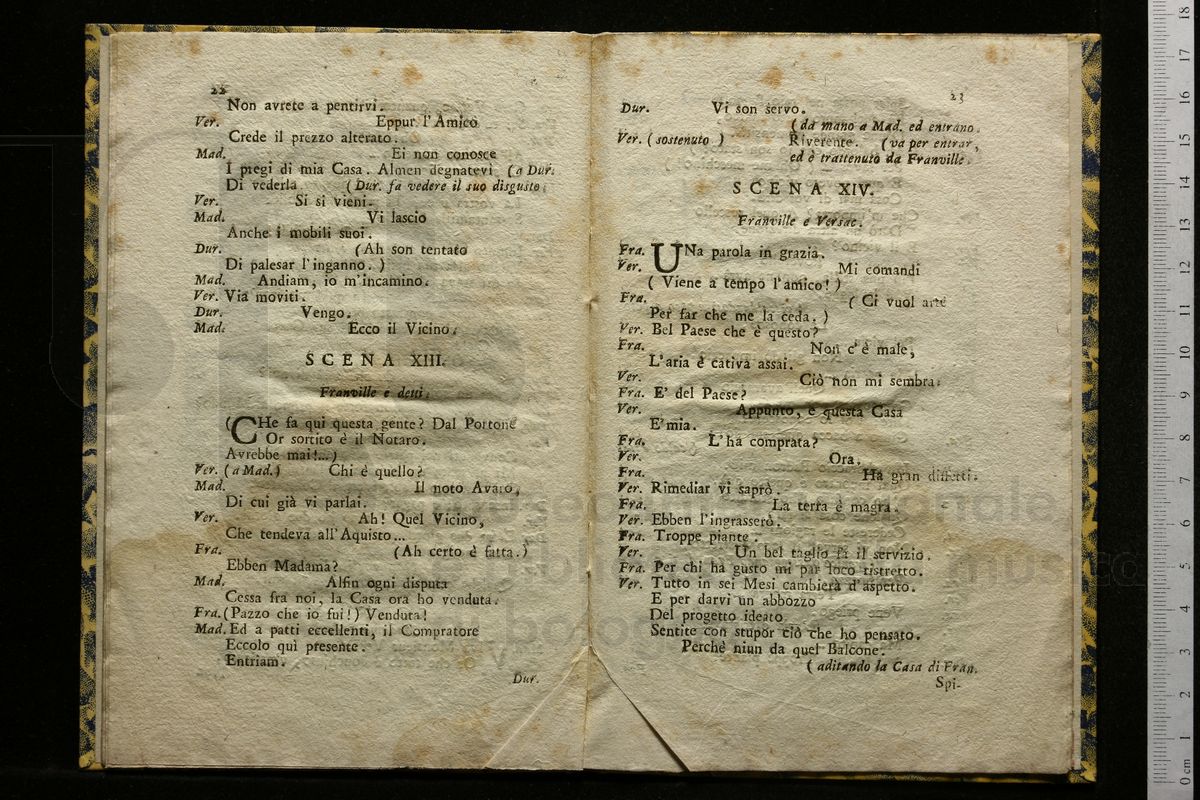 22
Non avrete a pentirvi.
Ver. Eppur l'Amico
Crede il prezzo alterato.
Mad. Ei non conosce
I pregi di mia Casa. Almen degnatevi (a Dur.
Di vederla (Dur. fa vedere il suo disgusto.
Ver. Si si vieni.
Mad. Vi lascio
Anche i mobili suoi.
Dur. (Ah son tentato
Di palesar l'inganno. )
Mad. Andiam, io m'incamino.
Ver. Via moviti.
Dur. Vengo.
Mad. Ecco il Vicino.
SCENA XIII.
Franville e detti.
(CHe fa qui questa gente? Dal Portone
Or sortito è il Notaro.
Avrebbe mai!...)
Ver. (a Mad.) Chi è quello?
Mad. Il noto Avaro,
Di cui già vi parlai.
Ver. Ah! Quel Vicino,
Che tendeva all'Aquisto...
Fra. (Ah certo è fatta.)
Ebben Madama?
Mad. Alfin ogni disputa
Cessa fra noi, la Casa ora ho venduta.
Fra. (Pazzo che io fui!) Venduta!
Mad. Ed a patti eccellenti, il Compratore
Eccolo quì presente.
Entriam.
Dur.
23
Dur. Vi son servo.
(da mano a Mad. ed entrano.
Ver. (sostenuto) Riverente. (va per entrar,
ed è trattenuto da Franville.
SCENA XIV.
Franville e Versac.
Fra. UNa parola in grazia.
Ver. Mi comandi
( Viene a tempo l'amico! )
Fra. (Ci vuol arte
Per far che me la ceda. )
Ver. Bel Paese che è questo?
Fra. Non c'è male,
L'aria è cativa assai.
Ver. Ciò non mi sembra.
Fra. E' del Paese?
Ver. Appunto, e questa Casa
E' mia.
Fra. L'ha comprata?
Ver. Ora.
Fra. Ha gran diffetti.
Ver. Rimediar vi saprò.
Fra. La terra è magra.
Ver. Ebben l'ingrasserò.
Fra. Troppe piante.
Ver. Un bel taglio fa il servizio.
Fra. Per chi ha gusto mi par loco ristretto.
Ver. Tutto in sei Mesi cambierà d'aspetto.
E per darvi un abbozzo
Del progetto ideato
Sentite con stupor ciò che ho pensato.
Perchè niun da quel Balcone.
(aditando la Casa di Fran.
Spi-